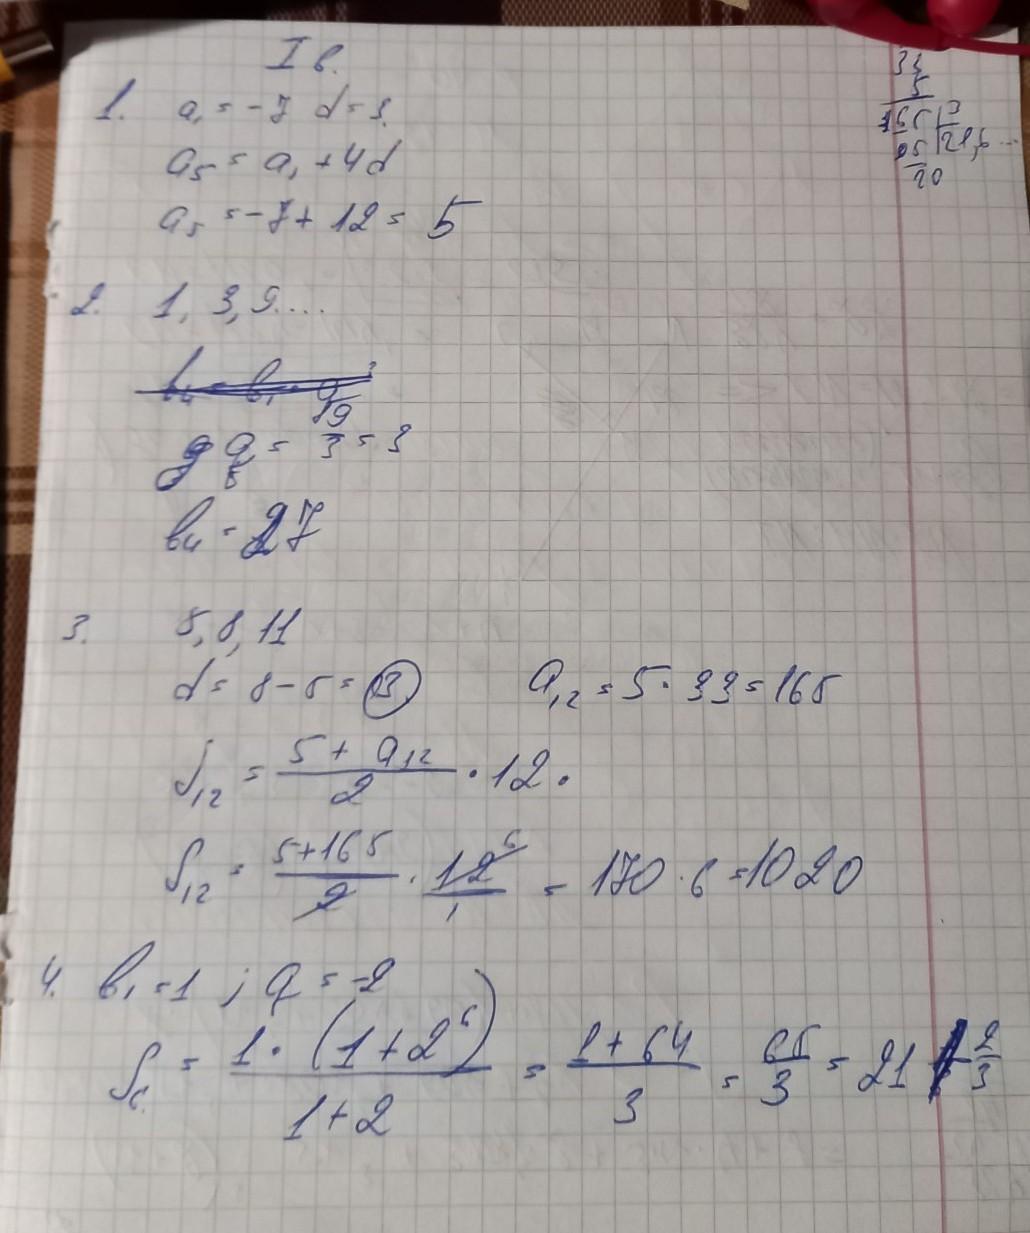 I в.
1. a₁ = -7 d = 3.
a₅ = a₁ + 4d
a₅ = -7 + 12 = 5
2. 1, 3, 9....
b₄ = b₁ · q³
q = 9/3 = 3
b₄ = 27
3. 5, 8, 11
d = 8 - 5 = 3 a₁₂ = 5 · 33 = 165
S₁₂ = (5 + a₁₂)/2 · 12 .
S₁₂ = (5+165)/2 · 12/1 6 = 170 · 6 = 1020
4. b₁ = 1 ; q = -2
S₆ = (1 · (1 + 2⁶))/(1 + 2) = (1 + 64)/3 = 65/3 = 21 2/3
33
5
165 | 3
21,6...
20